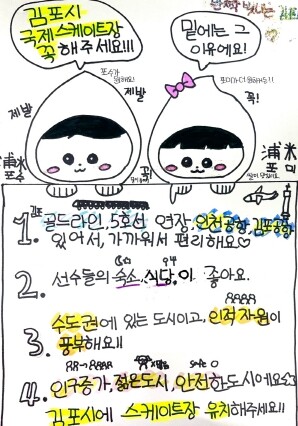 김포시
국제스케이트장
꼭 해주세요!!!
밑에는 그
이유에요!
제발
제발
꼭!
꼭!
浦米
포수
浦米
포미
1. 김포 골드라인, 5호선 연장, 인천공항, 김포공항
있어서, 가까워서 편리해요♡
2. 선수들의 숙소, 식당,이 좋아요.
3. 수도권에 있는 도시이고, 인적 자원이
풍부해요!!
4. 인구증가, 젊은도시, 안전한도시에요
김포시에 스케이트장 유치해주세요!!